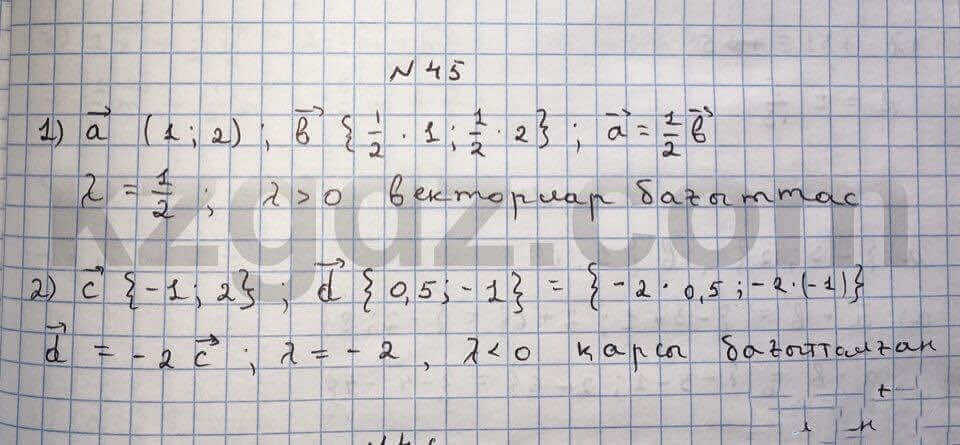 N 45
1) a⃗ (1; 2); b⃗ {1/2 · 1; 1/2 · 2}; a⃗ = 1/2 b⃗
λ = 1/2; λ > 0 векторлар бағыттас
kzgdz.com
2) c⃗ {-1; 2}; d⃗ {0,5; -1} = {-2 · 0,5; -2 · (-1)}
d⃗ = -2 c⃗; λ = -2, λ < 0 қарсы бағытталған